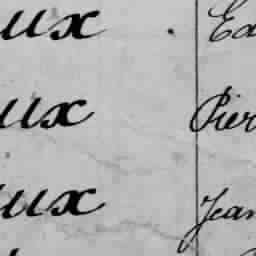 ux Ed
ux Pier
ux Jean